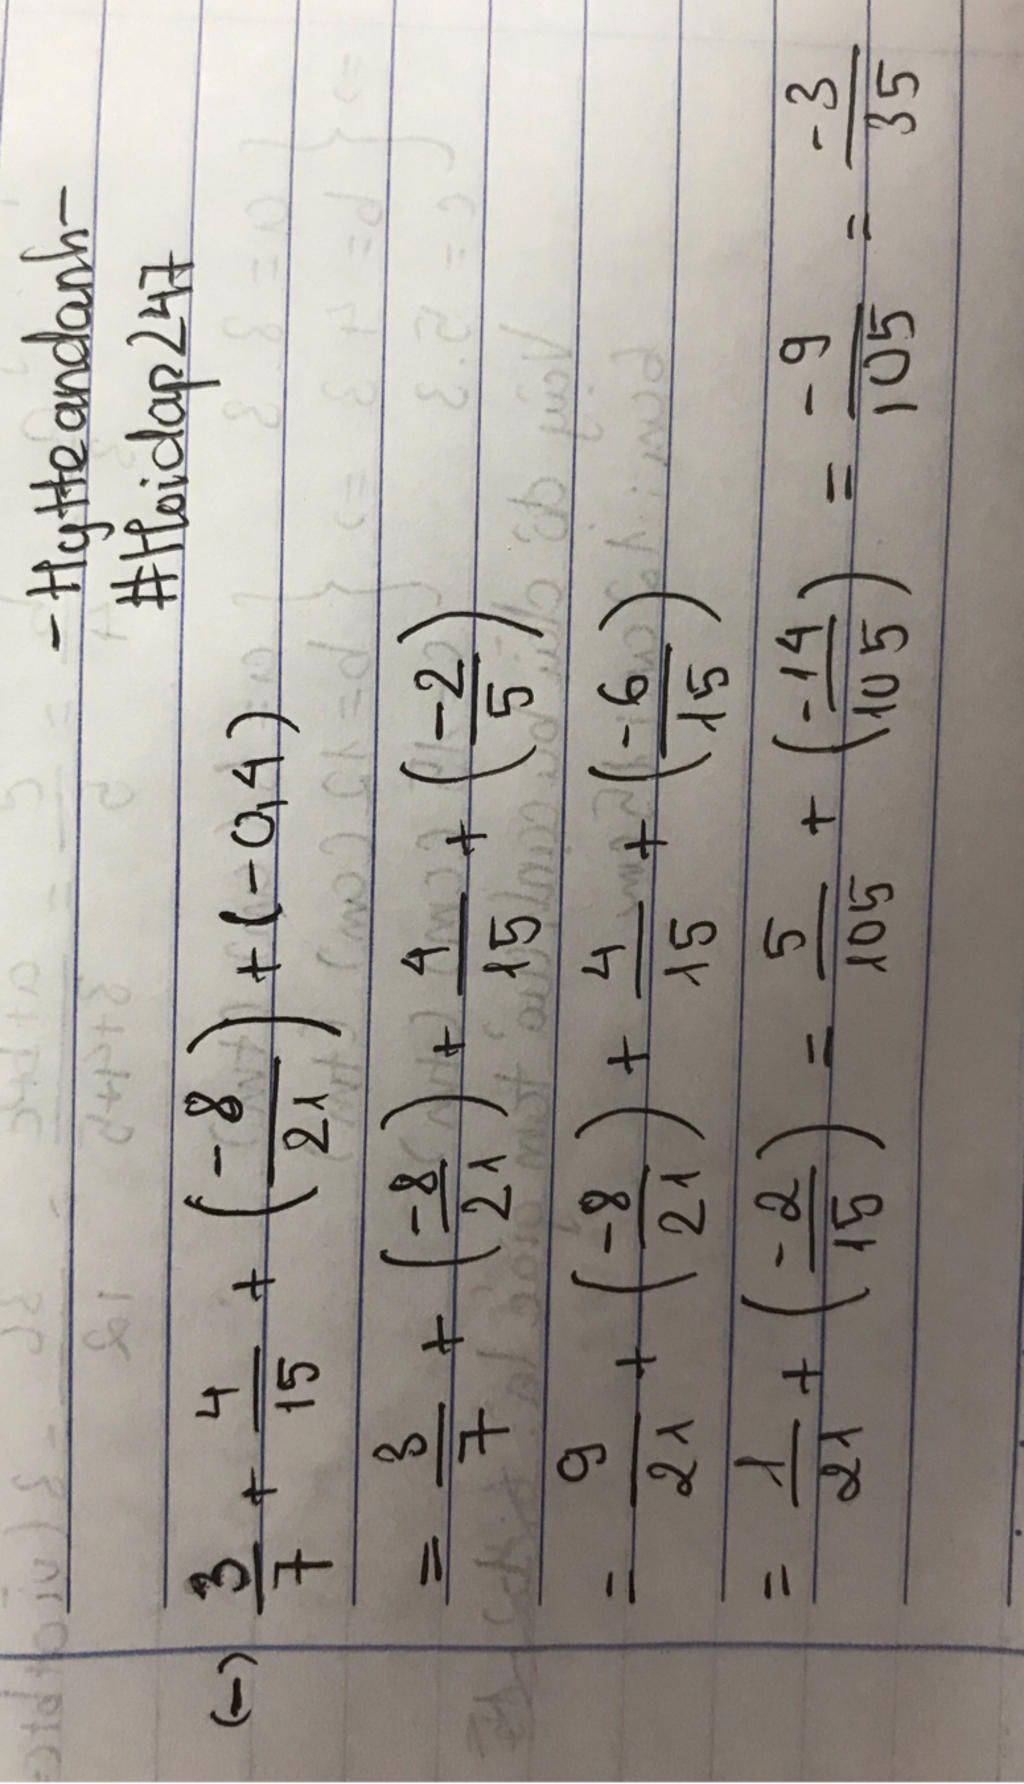 -HyHeandanh-
#Hoidap247
(-) 3/7 + 4/15 + (-8/21) + (-0,4)
= 3/7 + (-8/21) + 4/15 + (-2/5)
= 9/21 + (-8/21) + 4/15 + (-6/15)
= 1/21 + (-2/15) = 5/105 + (-14/105) = -9/105 = -3/35